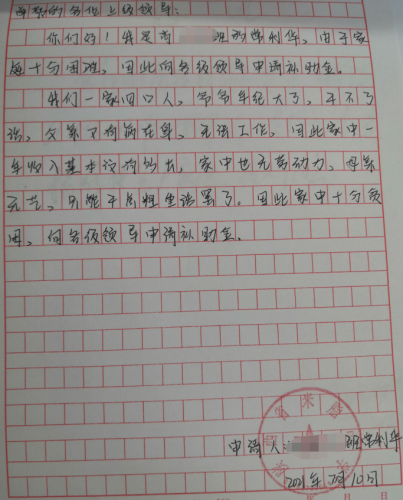 尊敬的各位上级领导：
你们好！我是高 班的常利华，由于家
庭十分困难，因此向各级领导申请补助金。
我们一家四口人，爷爷年纪大了，干不了
活，父亲又有病在身，无法工作，因此家中一
年收入基本没有的出，家中也无劳动力，母亲
无艺，只能干点粗生活罢了。因此家中十分贫
困，向各级领导申请补助金。
申请人： 班常利华
2021年7月10日